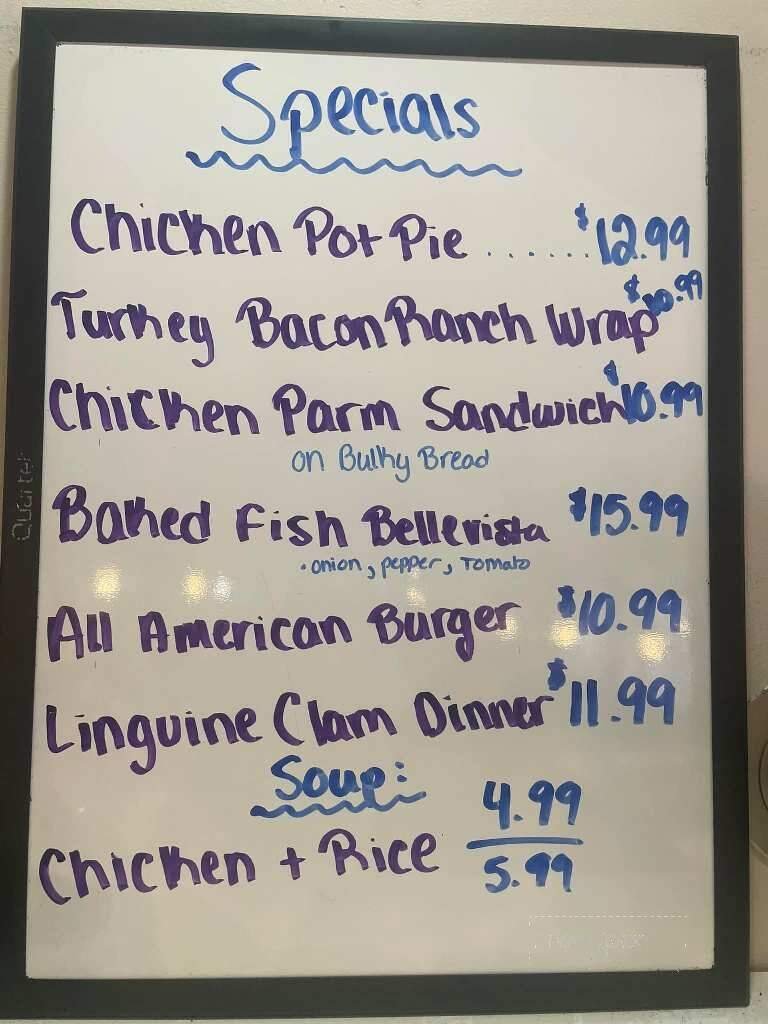 Specials
Chicken Pot Pie ...... $12.99
Turkey Bacon Ranch Wrap $10.99
Chicken Parm Sandwich $10.99
on Bulky Bread
Baked Fish Bellevista $15.99
• onion, pepper, Tomato
All American Burger $10.99
Linguine Clam Dinner $11.99
Soup:
Chicken + Rice 4.99
5.99
Quartet